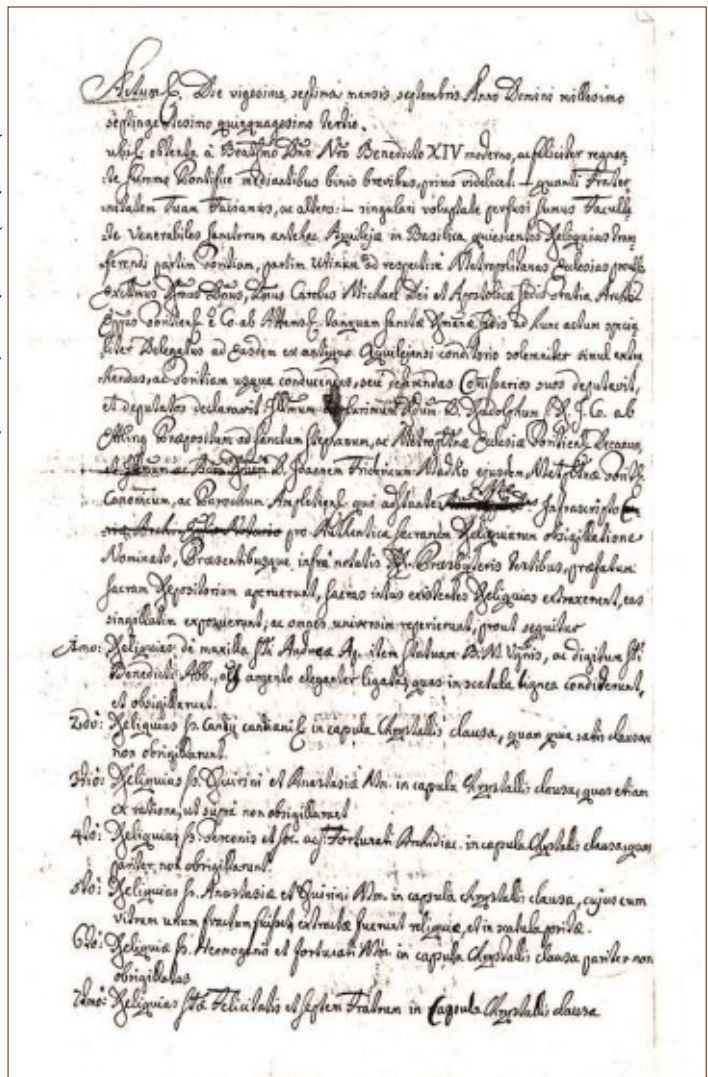 Actum &. Die vigesima septima mensis septembris Anno Domini millesimo
septingentesimo quinquagesimo tertio.
obtenta à Beatsmo Dno Nro Benedicto XIV moderno, ac feliciter regnan
te summo Pontifice mediantibus binis brevibus, primo videlicet: – quanti Frater
nitatem Tuam faciamus, ac altero: – singulari voluptate perfusi sumus Facult
te Venerabiles sanctorum antehac Aquilejæ in Basilica quiescentes Reliquias trans
ferendi partim Goritiam, partim Utinum ad respectivè Metropolitanas Ecclesias
Dnus, Dnus Carolus Michael Dei et Apostolicæ Sedis Gratia Archi
Eppus è Co. ab Attems & tanquam sanctæ Sedis ad hunc actum speci
liter Delegatus ad easdem ex antiquo Aquilejensi conditorio solemniter simul extra
hendas, ac Goritiam usque conducendas, seu deferendas Comissarios suos deputavit,
et deputatos declaravit Illmum D. Rudolphum S. R. J. Co. ab
Edling Præpositum ad sanctum Stephanum, ac Metroptnæ Ecclesiæ Decanum,
D. Joannem Fridericum Madko ejusdem Metroptnæ
Canonicum, ac Parochum qui adstante Infrascripto
pro Authentica sacrarum Reliquiarum obsigillatione
Nominato, Præsentibusque infra notatis Præsbyteris testibus, præfatum
sacrum Repositorium aperuerunt, sacras intus existentes Reliquias extraxerunt, eas
singillatim exposuerunt, ac omnes universim reperierunt, prout sequitur
1mo: Reliquias de maxilla Sti Andreæ Ap. item statuam B. M. Vgnis, ac digitum Sti
Benedicti Abb., argento eleganter ligatas, quas in scatula lignea condiderunt,
et obsigillarunt.
2do: Reliquias Ss. Cantii Cantiani & in capsula Chrystallis clausa, quam quia satis clausam
non obsigillarunt.
3tiò: Reliquias Ss. Quirini et Anastasiæ Mm. in capsula Chrystallis clausa, quas etiam
ex ratione, ut supra non obsigillarunt
4tò: Reliquias Ss. et Soc. ac S. Fortunati Archidiac. in capsula Chrystallis clausa, quam
pariter non obsigillarunt.
5tò: Reliquias Ss. Anastasiæ et Quirini Mm. in capsula Chrystallis clausa, cujus cum
vitrum unum fractum fuisset, extractæ fuerunt reliquiæ, et in scatula positæ.
6tò: Reliquiæ Ss. Hermogenis et Fortunati Mm. in capsula Chrystallis clausa pariter non
obsigillatas
7timò: Reliquias Stæ Felicitatis et septem Fratrum in Capsula Chrystallis clausa